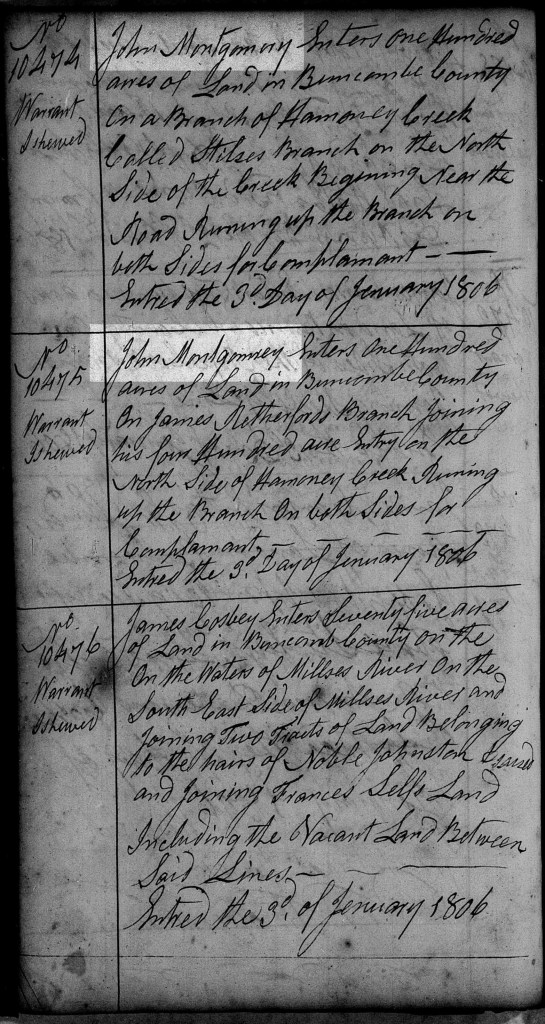 No
10474
Warrant
Ishewed
John Montgomory Enters one Hundred
acres of Land in Buncombe County
On a Branch of Hamoney Creek
Called Stilses Branch on the North
Side of the Creek Begining Near the
Road Runing up the Branch on
both Sides for Complamant
Entred the 3d Day of Jenuary 1806
No
10475
Warrant
Ishewed
John Montgomrey Enters One Hundred
acres of Land in Buncombe County
On James Retherfords Branch Joining
his four Hundred acre Entry on the
North Side of Hamoney Creek Runing
up the Branch On both Sides for
Complamant
Entred the 3d. Day of Jenuary 1806
No.
10476
Warrant
Ishewed
James Cosbey Enters Seventy five acres
of Land in Buncomb County on the
On the Waters of Millses River On the
South East Side of Millses River and
Joining Two Tracts of Land Belonging
to the hairs of Noble Johnston
and Joining Frances Selfs Land
Including the Vacant Land Between
Said Lines
Entred the 3d. of Jenuary 1806